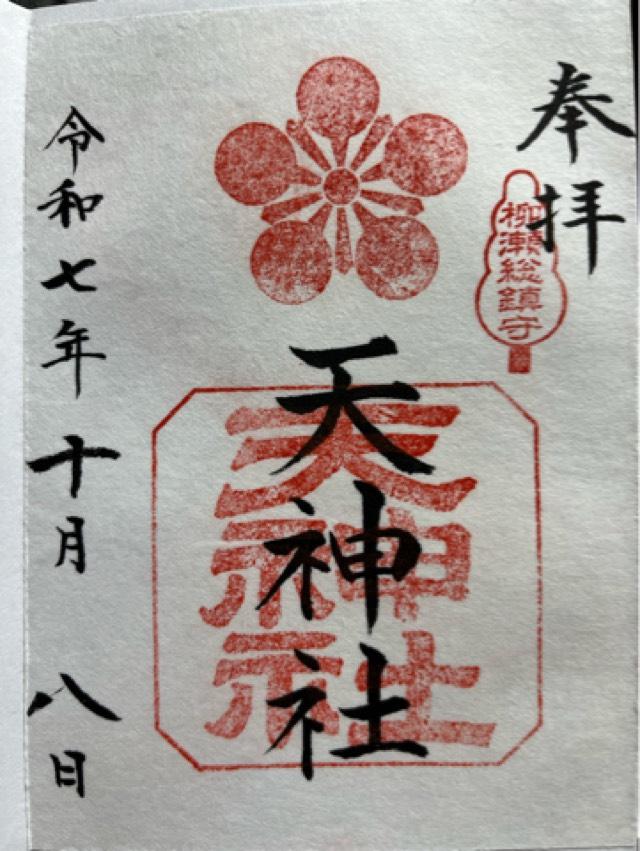 奉拝
柳瀬総鎮守
天神社
天神社
令和七年十月八日